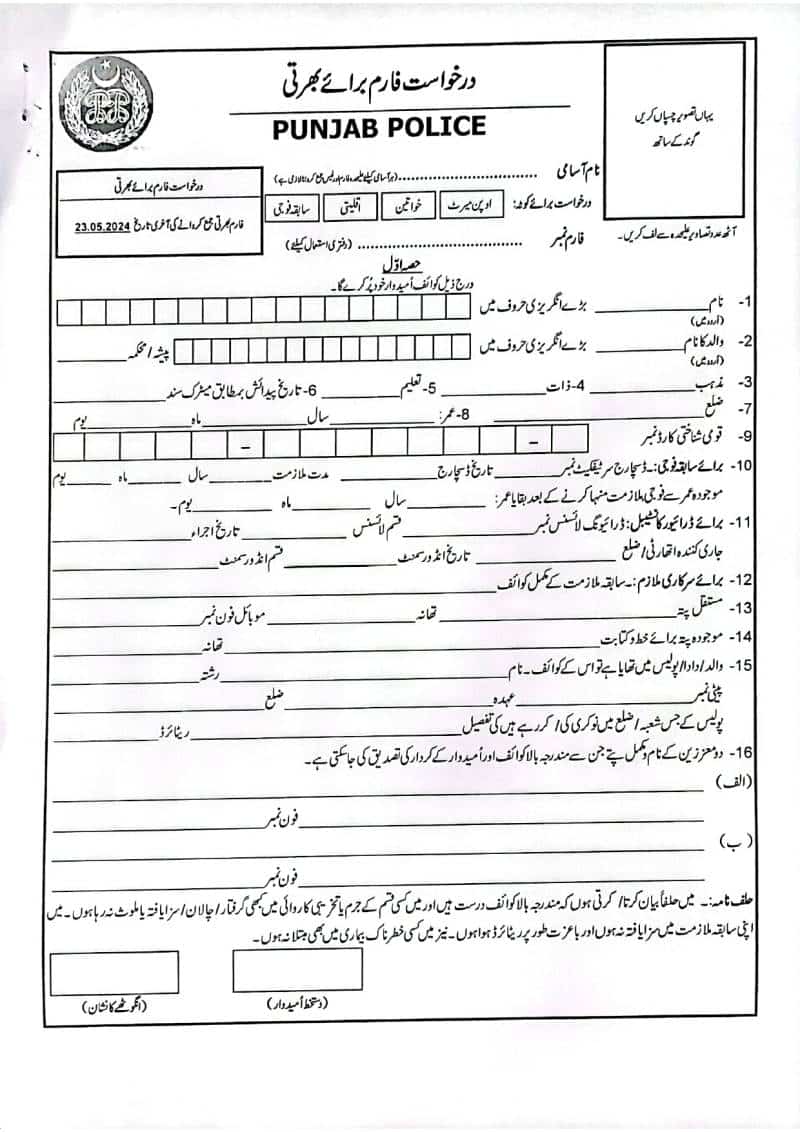 درخواست فارم برائے بھرتی
PUNJAB POLICE
یہاں تصویر چسپاں کریں
گوند کے ساتھ
آٹھ عدد تصاویر علیحدہ سے لف کریں۔
درخواست فارم برائے بھرتی
فارم بھرتی جمع کروانے کی آخری تاریخ 23.05.2024
نام آسامی ................................ (ہر آسامی کیلئے علیحدہ فارم اور فیس جمع کروانا لازمی ہے)
درخواست برائے کوٹہ: اوپن میرٹ خواتین اقلیتی سابقہ فوجی
فارم نمبر ................................ (دفتری استعمال کیلئے)
حصہ اوّل
درج ذیل کوائف اُمیدوار خود پُر کرے گا۔
1- نام ____________ بڑے انگریزی حروف میں
(اُردو میں)
2- والد کا نام ____________ بڑے انگریزی حروف میں پیشہ / محکمہ ____________
(اُردو میں)
3- مذہب ____________ 4- ذات ____________ 5- تعلیم ____________ 6- تاریخ پیدائش بمطابق میٹرک سند ____________
7- ضلع ____________ 8- عمر: ____________ سال ____________ ماہ ____________ یوم
9- قومی شناختی کارڈ نمبر – –
10- برائے سابقہ فوجی:۔ ڈسچارج سرٹیفکیٹ نمبر ____________ تاریخ ڈسچارج ____________ مدت ملازمت ____________ سال ____________ ماہ ____________ یوم
موجودہ عمر سے فوجی ملازمت منہا کرنے کے بعد بقایا عمر: ____________ سال ____________ ماہ ____________ یوم۔
11- برائے ڈرائیور کانسٹیبل: ڈرائیونگ لائسنس نمبر ____________ قسم لائسنس ____________ تاریخ اجراء ____________
جاری کنندہ اتھارٹی / ضلع ____________ تاریخ انڈورسمنٹ ____________ قسم انڈورسمنٹ ____________
12- برائے سرکاری ملازم:۔ سابقہ ملازمت کے مکمل کوائف ____________
13- مستقل پتہ ____________ تھانہ ____________ موبائل فون نمبر ____________
14- موجودہ پتہ برائے خط و کتابت ____________ تھانہ ____________
15- والد / دادا / پولیس میں تھا یا ہے تو اس کے کوائف۔ نام ____________ رشتہ ____________
پیٹی نمبر ____________ عہدہ ____________ ضلع ____________
پولیس کے جس شعبہ / ضلع میں نوکری کی / کر رہے ہیں کی تفصیل ____________ ریٹائرڈ ____________
16- دو معززین کے نام و مکمل پتے جن سے مندرجہ بالا کوائف اور اُمیدوار کے کردار کی تصدیق کی جا سکتی ہے۔
(الف) ____________
____________ فون نمبر ____________
(ب) ____________
____________ فون نمبر ____________
حلف نامہ:۔ میں حلفاً بیان کرتا / کرتی ہوں کہ مندرجہ بالا کوائف درست ہیں اور میں کسی قسم کے جرم یا تخریبی کاروائی میں کبھی گرفتار / چالان / سزا یافتہ یا ملوث نہ رہا ہوں۔ میں
اپنی سابقہ ملازمت میں سزا یافتہ نہ ہوں اور باعزت طور پر ریٹائرڈ ہوا ہوں۔ نیز میں کسی خطرناک بیماری میں بھی مبتلا نہ ہوں۔
(دستخط اُمیدوار) (انگوٹھے کا نشان)